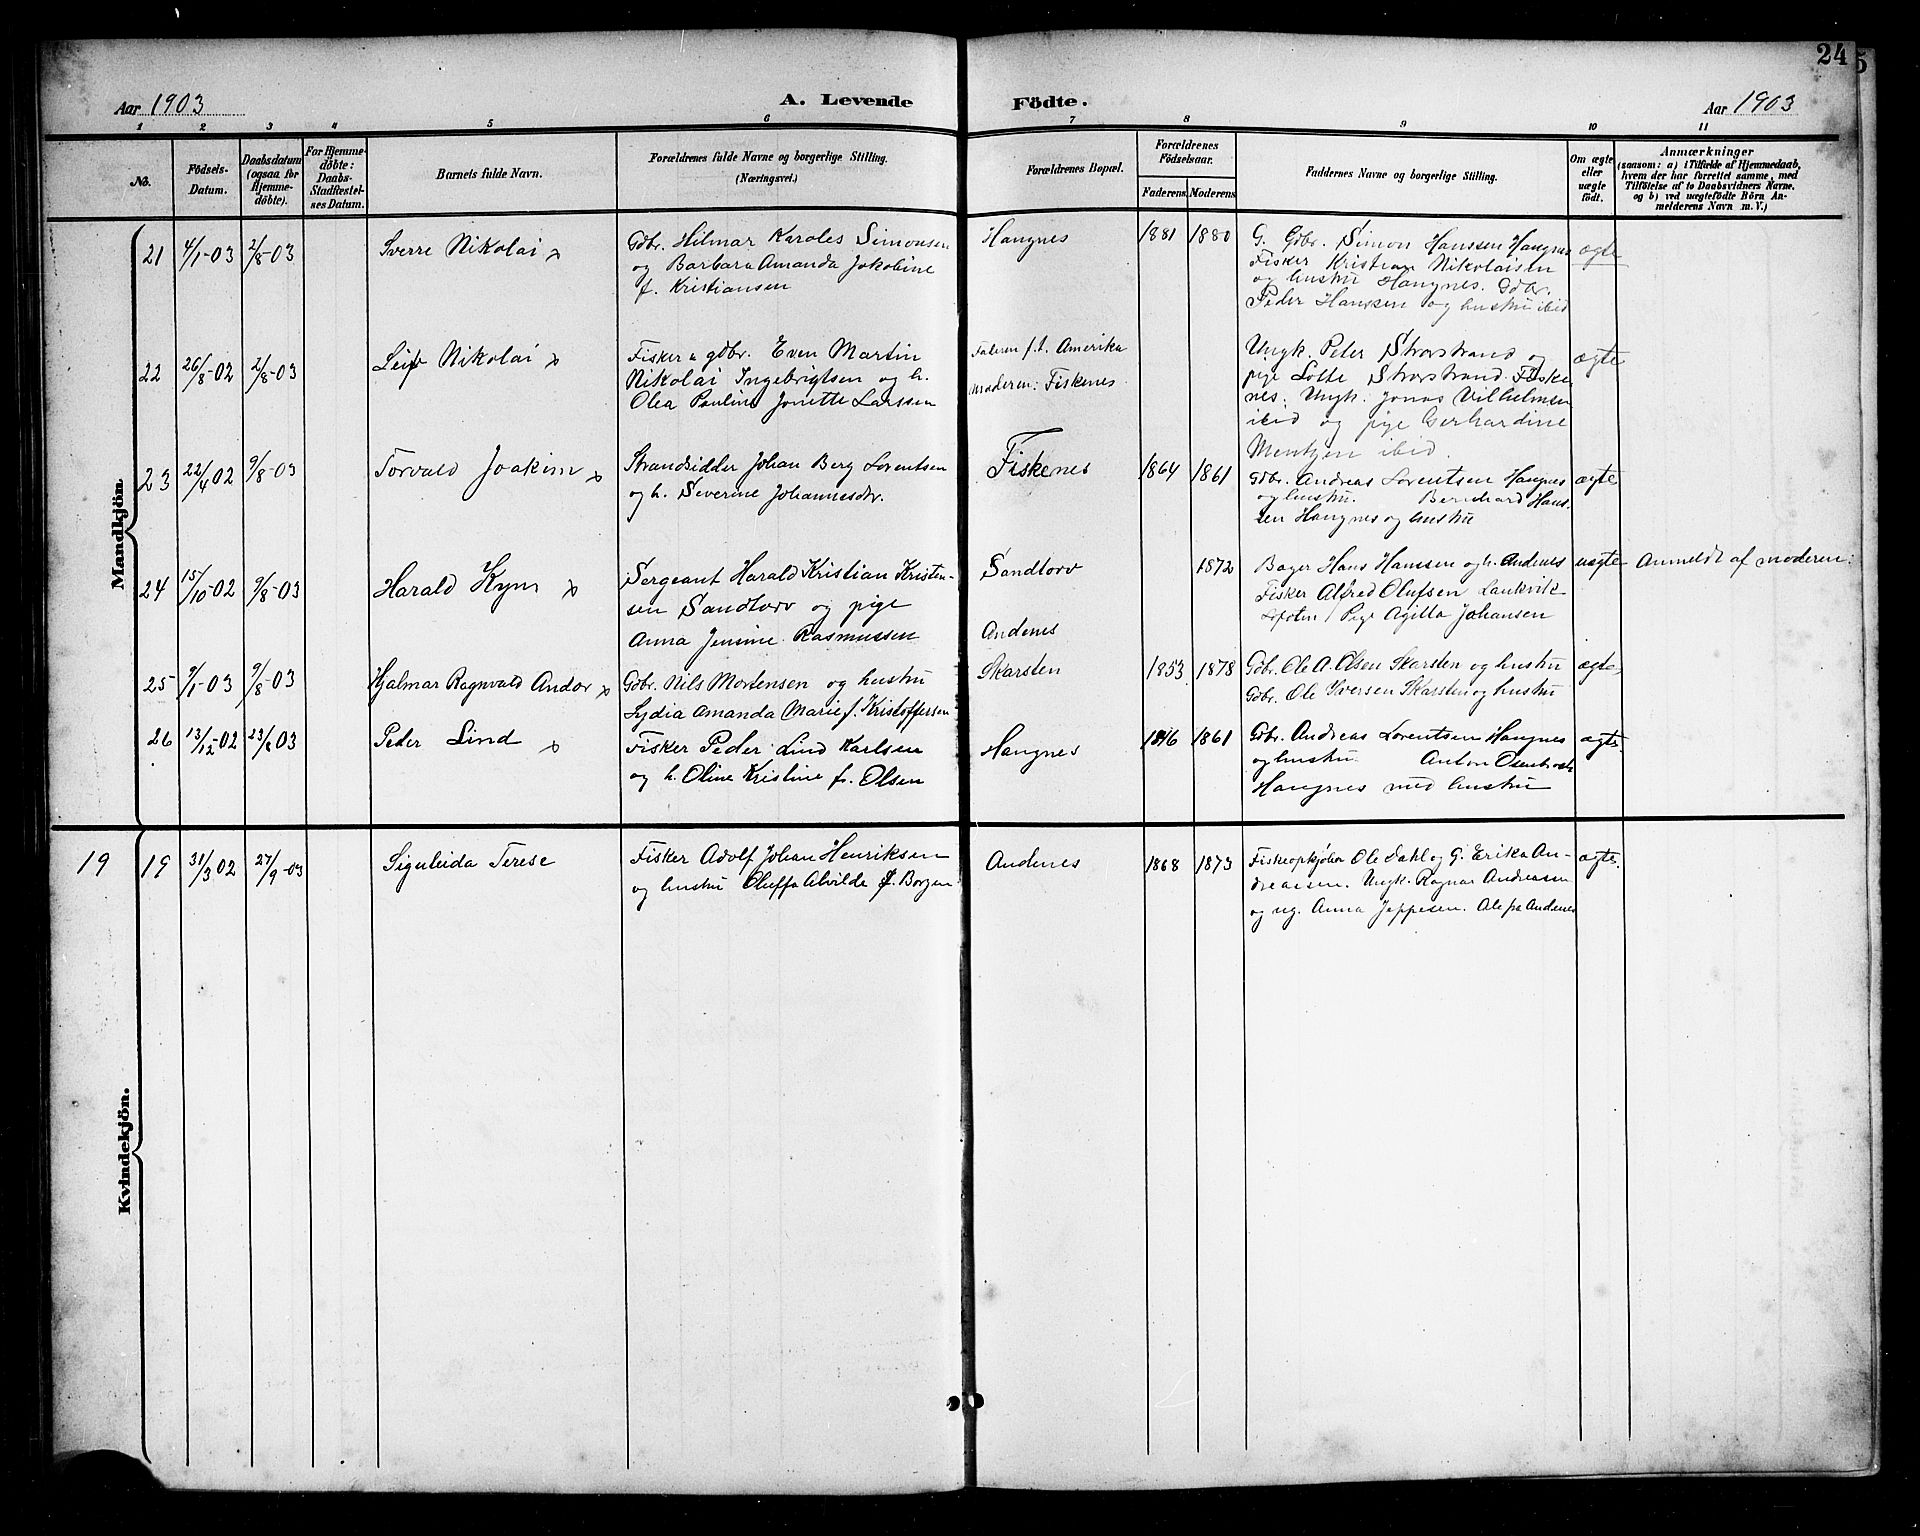 24
5
Aar 1903
A. Levende Födte.
Aar 1903
1 2 3 4 5 6 7 8 9 10 11
No.
Födsels-Datum.
Daabsdatum (ogsaa for Hjemmedöbte).
For Hjemmedöbte: Daabs-Stadfæstelses Datum.
Barnets fulde Navn.
Forældrenes fulde Navne og borgerlige Stilling.
(Næringsvei.)
Forældrenes Bopæl.
Forældrenes Födselsaar.
Faderens. Moderens.
Faddernes Navne og borgerlige Stilling.
Om ægte eller uægte födt.
Anmærkninger
(saasom: a) i Tilfælde af Hjemmedaab,
hvem der har forrettet samme, med
Tilföielse af to Daabsvidners Navne.
og b) ved uægtefödte Börn Anmelderens Navn m. V.)
Mandkjön.
21 4/1-03 2/8-03 Sverre Nikolai x
Gdbr. Hilmar Karoles Simonsen
og Barbara Amanda Jokobine
f. Kristiansen
Hangnes 1881 1880
G. Gdbr. Simon Hanssen Hangnes
Fisker Kristian Nikolaisen
og hustru Hangnes. Gdbr.
Peder Hanssen og hustru ibid
ægte
22 26/8-02 2/8-03 Leif Nikolai x
Fisker & gdbr. Even Martin
Nikolai Ingebrigtsen og h.
Olea Pauline Jonette Larssen
Faderen f.t. Amerika
Moderen: Fiskenes
Ungk. Peter Storstrand og
pige Lotte Storstrand. Fiskenes.
Ungk. Jonas Vilhelmsen
ibid og pige Gerhardine
Mentzen ibid.
ægte
23 22/4 02 9/8-03 Torvald Joakim x
Strandsidder Johan Berg Lorentsen
og h. Severine Johannesdr.
Fiskenes 1864 1861
Gdbr. Andreas Lorentsen Hangnes
og hustru. Bernhard Hanssen
Hangnes og hustru
ægte
24 15/10-02 9/8-03 Harald Kyn x
Sergeant Harald Kristian Kristensen
Sandtorv og pige
Anna Jensine Rasmussen
Sandtorv
Andenes
1872
Bager Hans Hanssen og h. Andenes
Fisker Alfred Olufsen Laukvik
Lofoten / Pige Agitta Johansen
uægte Anmeldt af moderen.
25 9/1-03 9/8-03 Hjalmar Ragnvald Andor x
Gdbr. Nils Mortensen og hustru
Lydia Amanda Marie f. Kristoffersen
Skarsten 1853 1878
Gdbr. Ole A. Olsen Skarsten og hustru
Gdbr. Ole Iversen Skarsten og hustru
ægte
26 13/12-02 23/8 03 Peder Lind x
Fisker Peder Lind Karlsen
og h. Oline Kristine f. Olsen
Hangnes 1861
Gdbr. Andreas Lorentsen Hangnes
og hustru. Anton
Hangnes med hustru
ægte
Kvindekjön.
19 19 31/3 02 27/9-03 Terese
Fisker Adolf Johan Henriksen
og hustru Oluffa Alvilde f. Borgen
Andenes 1868 1873
Fiskeopkjøber Ole Dahl og G. Erika Andreassen.
Ungk. Ragnar Andreassen
og ug. Anna Jeppesen. Ale fra Andenes
ægte.